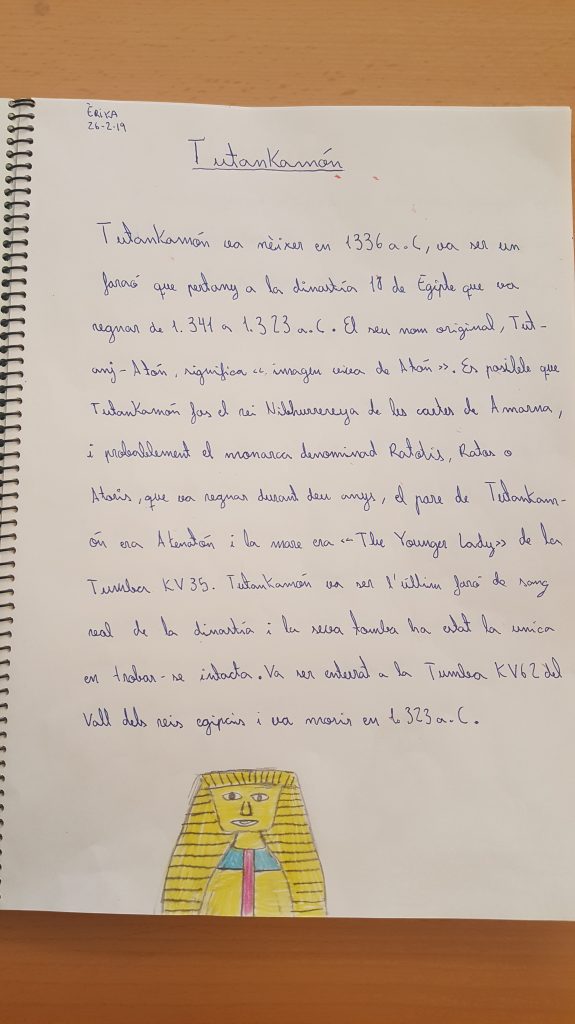 ÈRIKA
26-2-19
Tutankamón
Tutankamón va nèixer en 1336 a.C, va ser un
faraó que pertany a la dinastía 18 de Egipte que va
regnar de 1.341 a 1.323 a.C. El seu nom original, Tut-
anj-Atón, significa «imagen viva de Atón». Es posible que
Tutankamón fos el rei Nibhurrereya de les cartes de Amarna,
i probablement el monarca denominad Ratotis, Ratos o
Atoris, que va regnar durant deu anys, el pare de Tutankam-
ón era Atenatón i la mare era «The Younger Lady» de la
Tumba KV35. Tutankamón va ser l'últim faró de sang
real de la dinastía i la seva tomba ha estat la unica
en trobar-se intacta. Va ser enterrat a la Tumba KV62 del
Vall dels reis egipcis i va moris en 1.323 a.C.